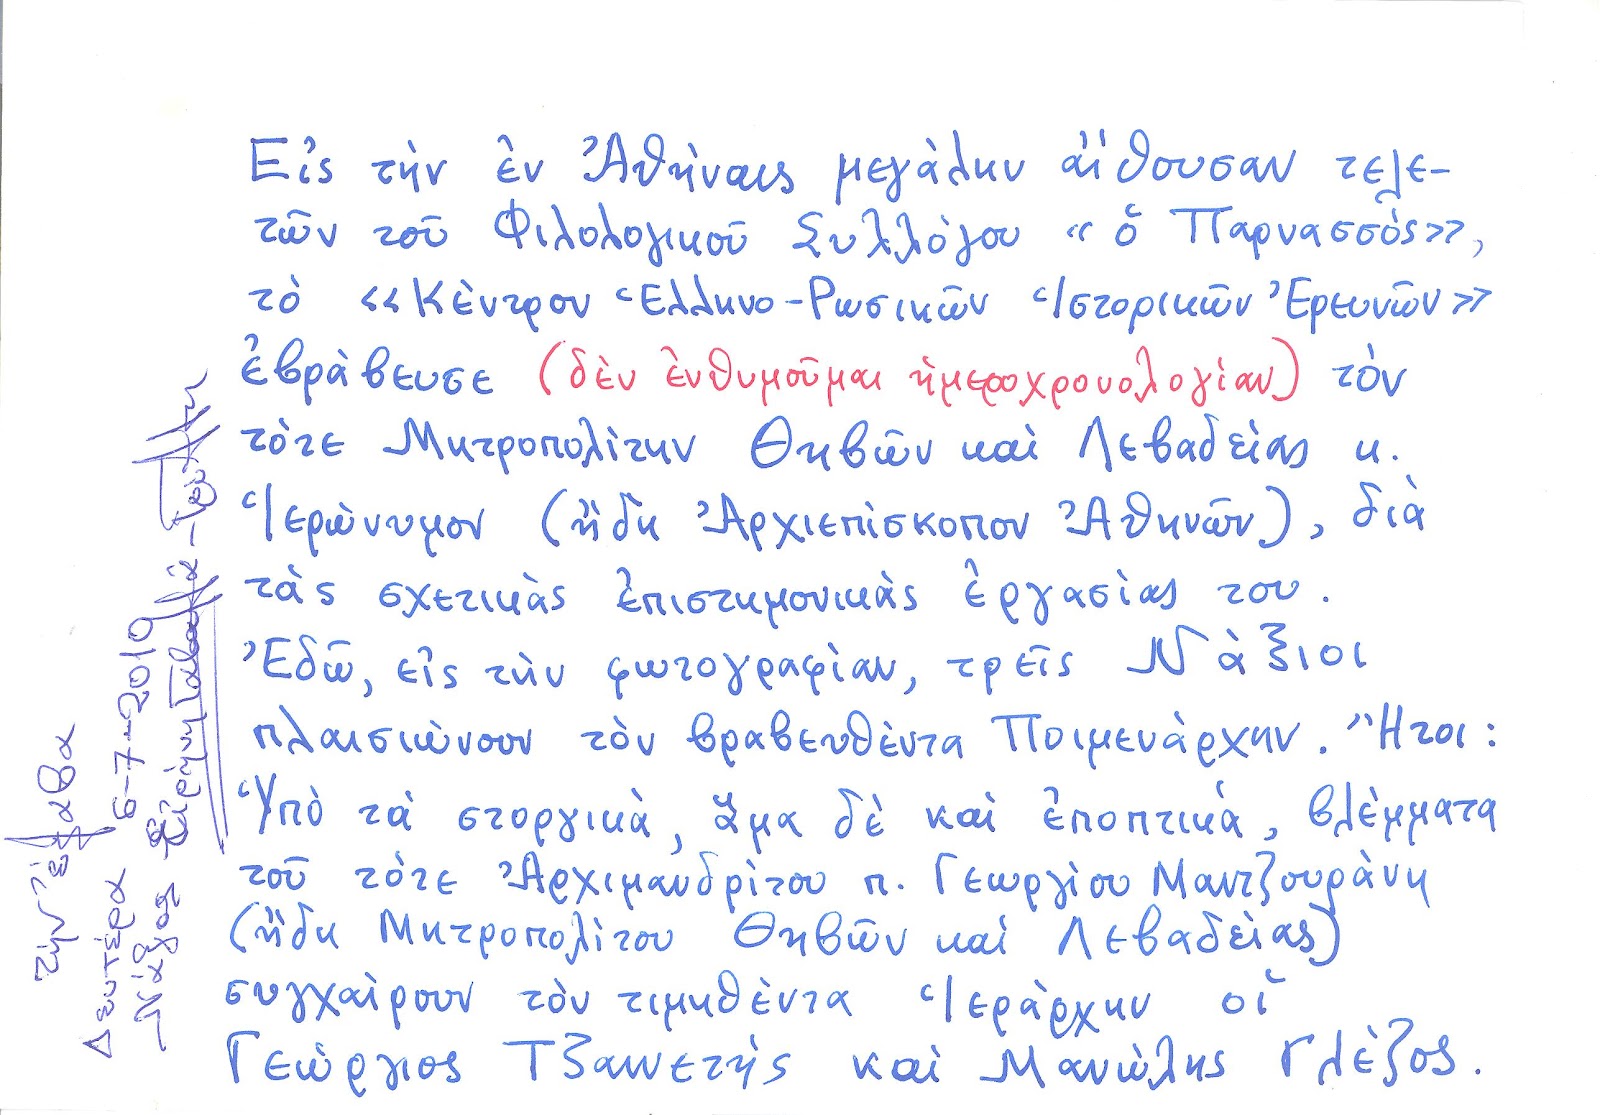 Εἰς τὴν ἐν Ἀθήναις μεγάλην αἴθουσαν τελε-
τῶν τοῦ Φιλολογικοῦ Συλλόγου «ὁ Παρνασσός»,
τὸ «Κέντρον Ἑλληνο-Ρωσικῶν Ἱστορικῶν Ἐρευνῶν»
ἐβράβευσε (δὲν ἐνθυμοῦμαι ἡμεροχρονολογίαν) τὸν
τότε Μητροπολίτην Θηβῶν καὶ Λεβαδείας κ.
Ἱερώνυμον (ἤδη Ἀρχιεπίσκοπον Ἀθηνῶν), διὰ
τὰς σχετικὰς ἐπιστημονικὰς ἐργασίας του.
Ἐδῶ, εἰς τὴν φωτογραφίαν, τρεῖς Νάξιοι
πλαισιώνουν τὸν βραβευθέντα Ποιμενάρχην. Ἤτοι:
Ὑπὸ τὰ στοργικὰ, ἅμα δὲ καὶ ἐποπτικά, βλέμματα
τοῦ τότε Ἀρχιμανδρίτου π. Γεωργίου Μαντζουράνη
(ἤδη Μητροπολίτου Θηβῶν καὶ Λεβαδείας)
συγχαίρουν τὸν τιμηθέντα Ἱεράρχην οἱ
Γεώργιος Τζαννετής καὶ Μανώλης Γλέζος.
τὴν ἔλαβα
Δευτέρα 5-7-2010
Νάξος